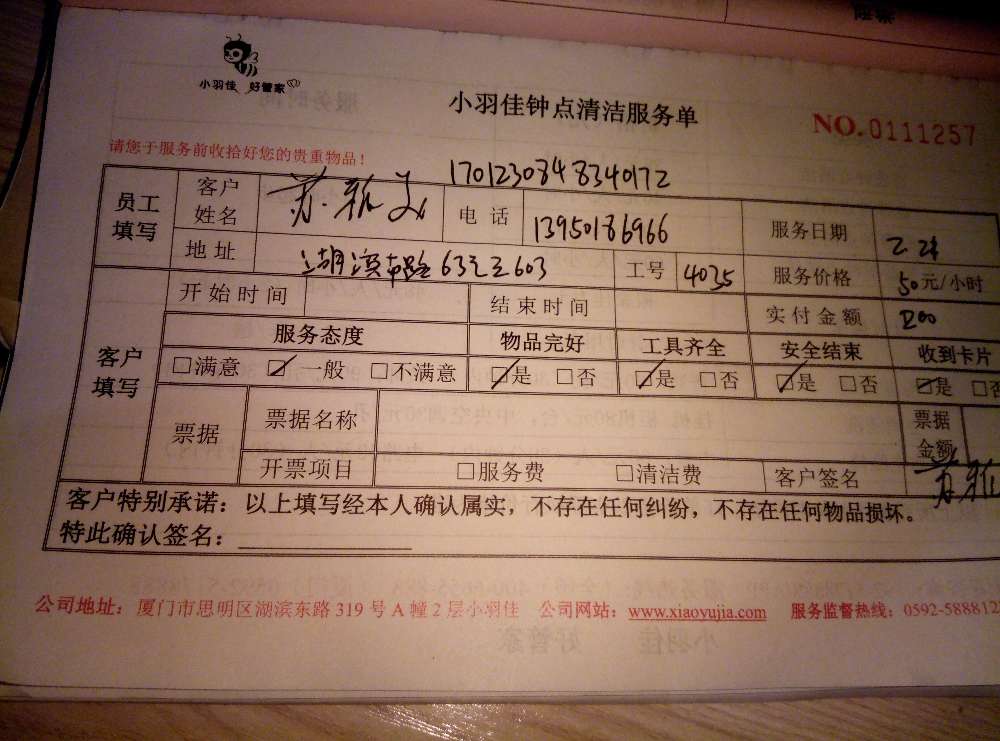 小羽佳 好管家
小羽佳钟点清洁服务单
NO.0111257
请您于服务前收拾好您的贵重物品！
1701230848340172
员工填写 客户姓名 苏雅 电话 13950186966 服务日期 2.21
地址 湖滨南路63之603 工号 4035 服务价格 50元/小时
客户填写 开始时间 结束时间 实付金额 200
服务态度 物品完好 工具齐全 安全结束 收到卡片
□满意 ☑一般 □不满意 ☑是 □否 ☑是 □否 ☑是 □否 ☑是 □否
票据 票据名称 票据金额
开票项目 □服务费 □清洁费 客户签名 苏雅
客户特别承诺：以上填写经本人确认属实，不存在任何纠纷，不存在任何物品损坏。
特此确认签名：
公司地址：厦门市思明区湖滨东路 319 号 A 幢 2 层小羽佳 公司网站：www.xiaoyujia.com 服务监督热线：0592-588812